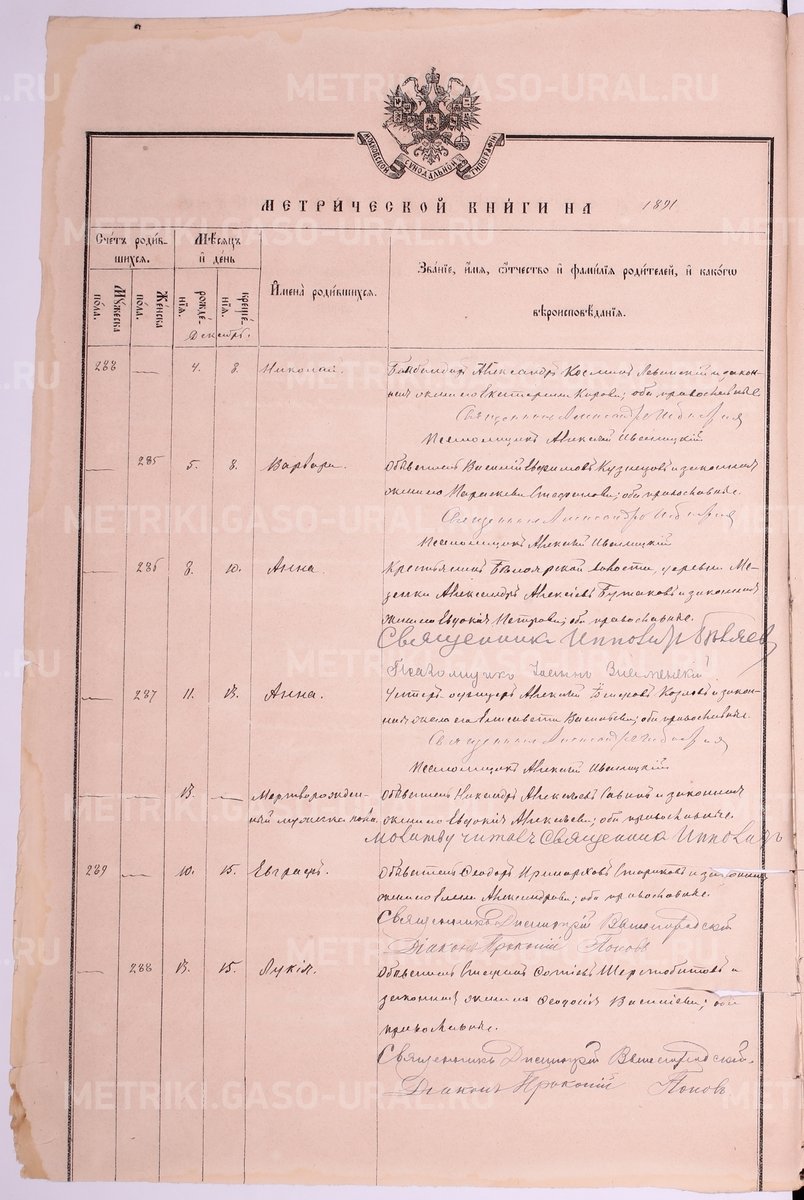 METRIKI.GASO-URAL.RU
МОСКОВСКОЙ СѴНОДАЛЬНОЙ ТИПОГРАФІИ
МЕТРИ́ЧЕСКОЙ КНИ́ГИ НА 1891
Сче́тъ роди́в-
шихсѧ.
Мꙋжеска по́ла.
Женска по́ла.
Мѣ́сѧцъ
и҆ де́нь
рожде́-
нїѧ.
креще́-
нїѧ.
И҆мена̀ роди́вшихсѧ.
Зва́нїе, и҆́мѧ, ѻ҆́тчество и҆ фами́лїѧ роди́телей, и҆ како́гѡ
вѣроисповѣ́данїѧ.
Декабрь.
288 — 4. 8. Николай. Александръ Косминъ и закон-
ная жена его Екатерина Карпова; оба православные
Священникъ Александръ
Псаломщикъ Алексій Иваницкій
— 285 5. 8. Варвара. Обыватель Василій Кузнецовъ и законная
жена его Параскева Стефанова; оба православные.
Священникъ Александръ
Псаломщикъ Алексій Иваницкій
— 286 8. 10. Анна. Крестьянинъ Бѣлоярской волости, деревни Ме-
зенки Александръ Алексѣевъ Бутаковъ и законная
жена его Евдокія Петрова; оба православные.
Священникъ Ипполитъ Бѣляевъ
Псаломщикъ Іоаннъ
— 287 11. 13. Анна. Унтеръ-офицеръ Алексій Козловъ и закон-
ная жена его Елисавета Васильева; оба православные.
Священникъ Александръ
Псаломщикъ Алексій Иваницкій
— 13. — Мертворожден-
ный мужеска пола. Обыватель Никандръ Алексѣевъ и законная
жена его Евдокія Алексѣева; оба православные.
Молитву читалъ Священникъ Ипполитъ
289 — 10. 15. Евграфъ. Обыватель Ѳеодоръ Стариковъ и законная
жена его Елена Александрова; оба православные.
Священникъ Димитрій Вышегородскій
Діаконъ Прокопій Поповъ
— 288 13. 15. Лукія. Обыватель Шерстобитовъ и
законная жена его Ѳеодосія Василіева; оба
православные.
Священникъ Димитрій Вышегородскій
Діаконъ Прокопій Поповъ